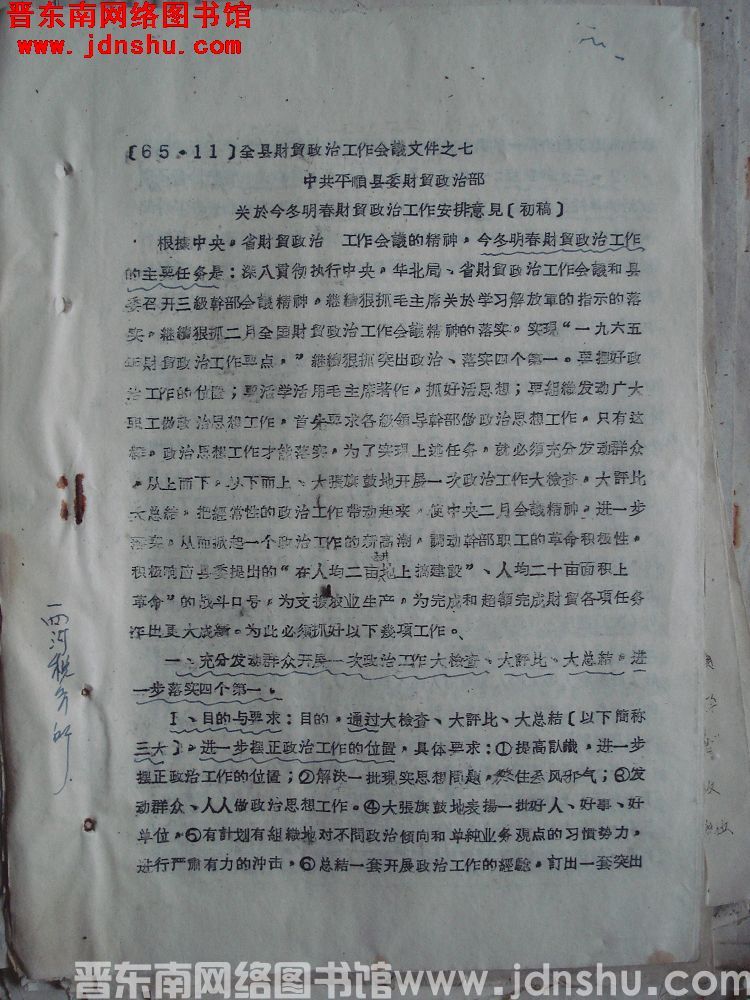 晋东南网络图书馆
www.jdnshu.com
〔65.11〕全县財貿政治工作会議文件之七
中共平順县委財貿政治部
关於今冬明春財貿政治工作安排意見〔初稿〕
根据中央，省財貿政治 工作会議的精神，今冬明春財貿政治工作
的主要任务是：深入貫彻执行中央，华北局、省財貿政治工作会議和县
委召开三級幹部会議精神，継續狠抓毛主席关於学习解放軍的指示的落
实，継續狠抓二月全国財貿政治工作会議精神的落实。实現“一九六五
年財貿政治工作要点，”継續狠抓突出政治、落实四个第一。要摆好政
治工作的位置；要活学活用毛主席著作，抓好活思想；要組織发动广大
职工做政治思想工作，首先要求各級領导幹部做政治思想工作，只有这
样，政治思想工作才能落实，为了实現上述任务，就必須充分发动群众
，从上而下，从下而上、大張旗鼓地开展一次政治工作大檢查，大評比
大总結，把經常性的政治工作带动起来，使中央二月会議精神，进一步
落实，从而掀起一个政治工作的新高潮，調动幹部职工的革命积极性。
积极响应县委提出的“在人均二亩耕地上搞建設”、人均二十亩面积上
革命”的战斗口号，为支援农业生产，为完成和超額完成財貿各項任务
作出更大成績。为此必須抓好以下幾項工作。
一、充分发动群众开展一次政治工作大檢查、大評比、大总結，进
一步落实四个第一。
1、目的与要求：目的，通过大檢查、大評比、大总結〔以下簡称
三大〕，进一步摆正政治工作的位置，具体要求：①提高認識，进一步
摆正政治工作的位置；②解决一批現实思想問題，煞住歪风邪气；③发
动群众、人人做政治思想工作。④大張旗鼓地表揚一批好人、好事、好
单位，⑤有計划有組織地对不問政治傾向和单純业务观点的习慣势力，
进行严肃有力的冲击，⑥总結一套开展政治工作的經驗，訂出一套突出
西沟税务所
晋东南网络图书馆 www.jdnshu.com